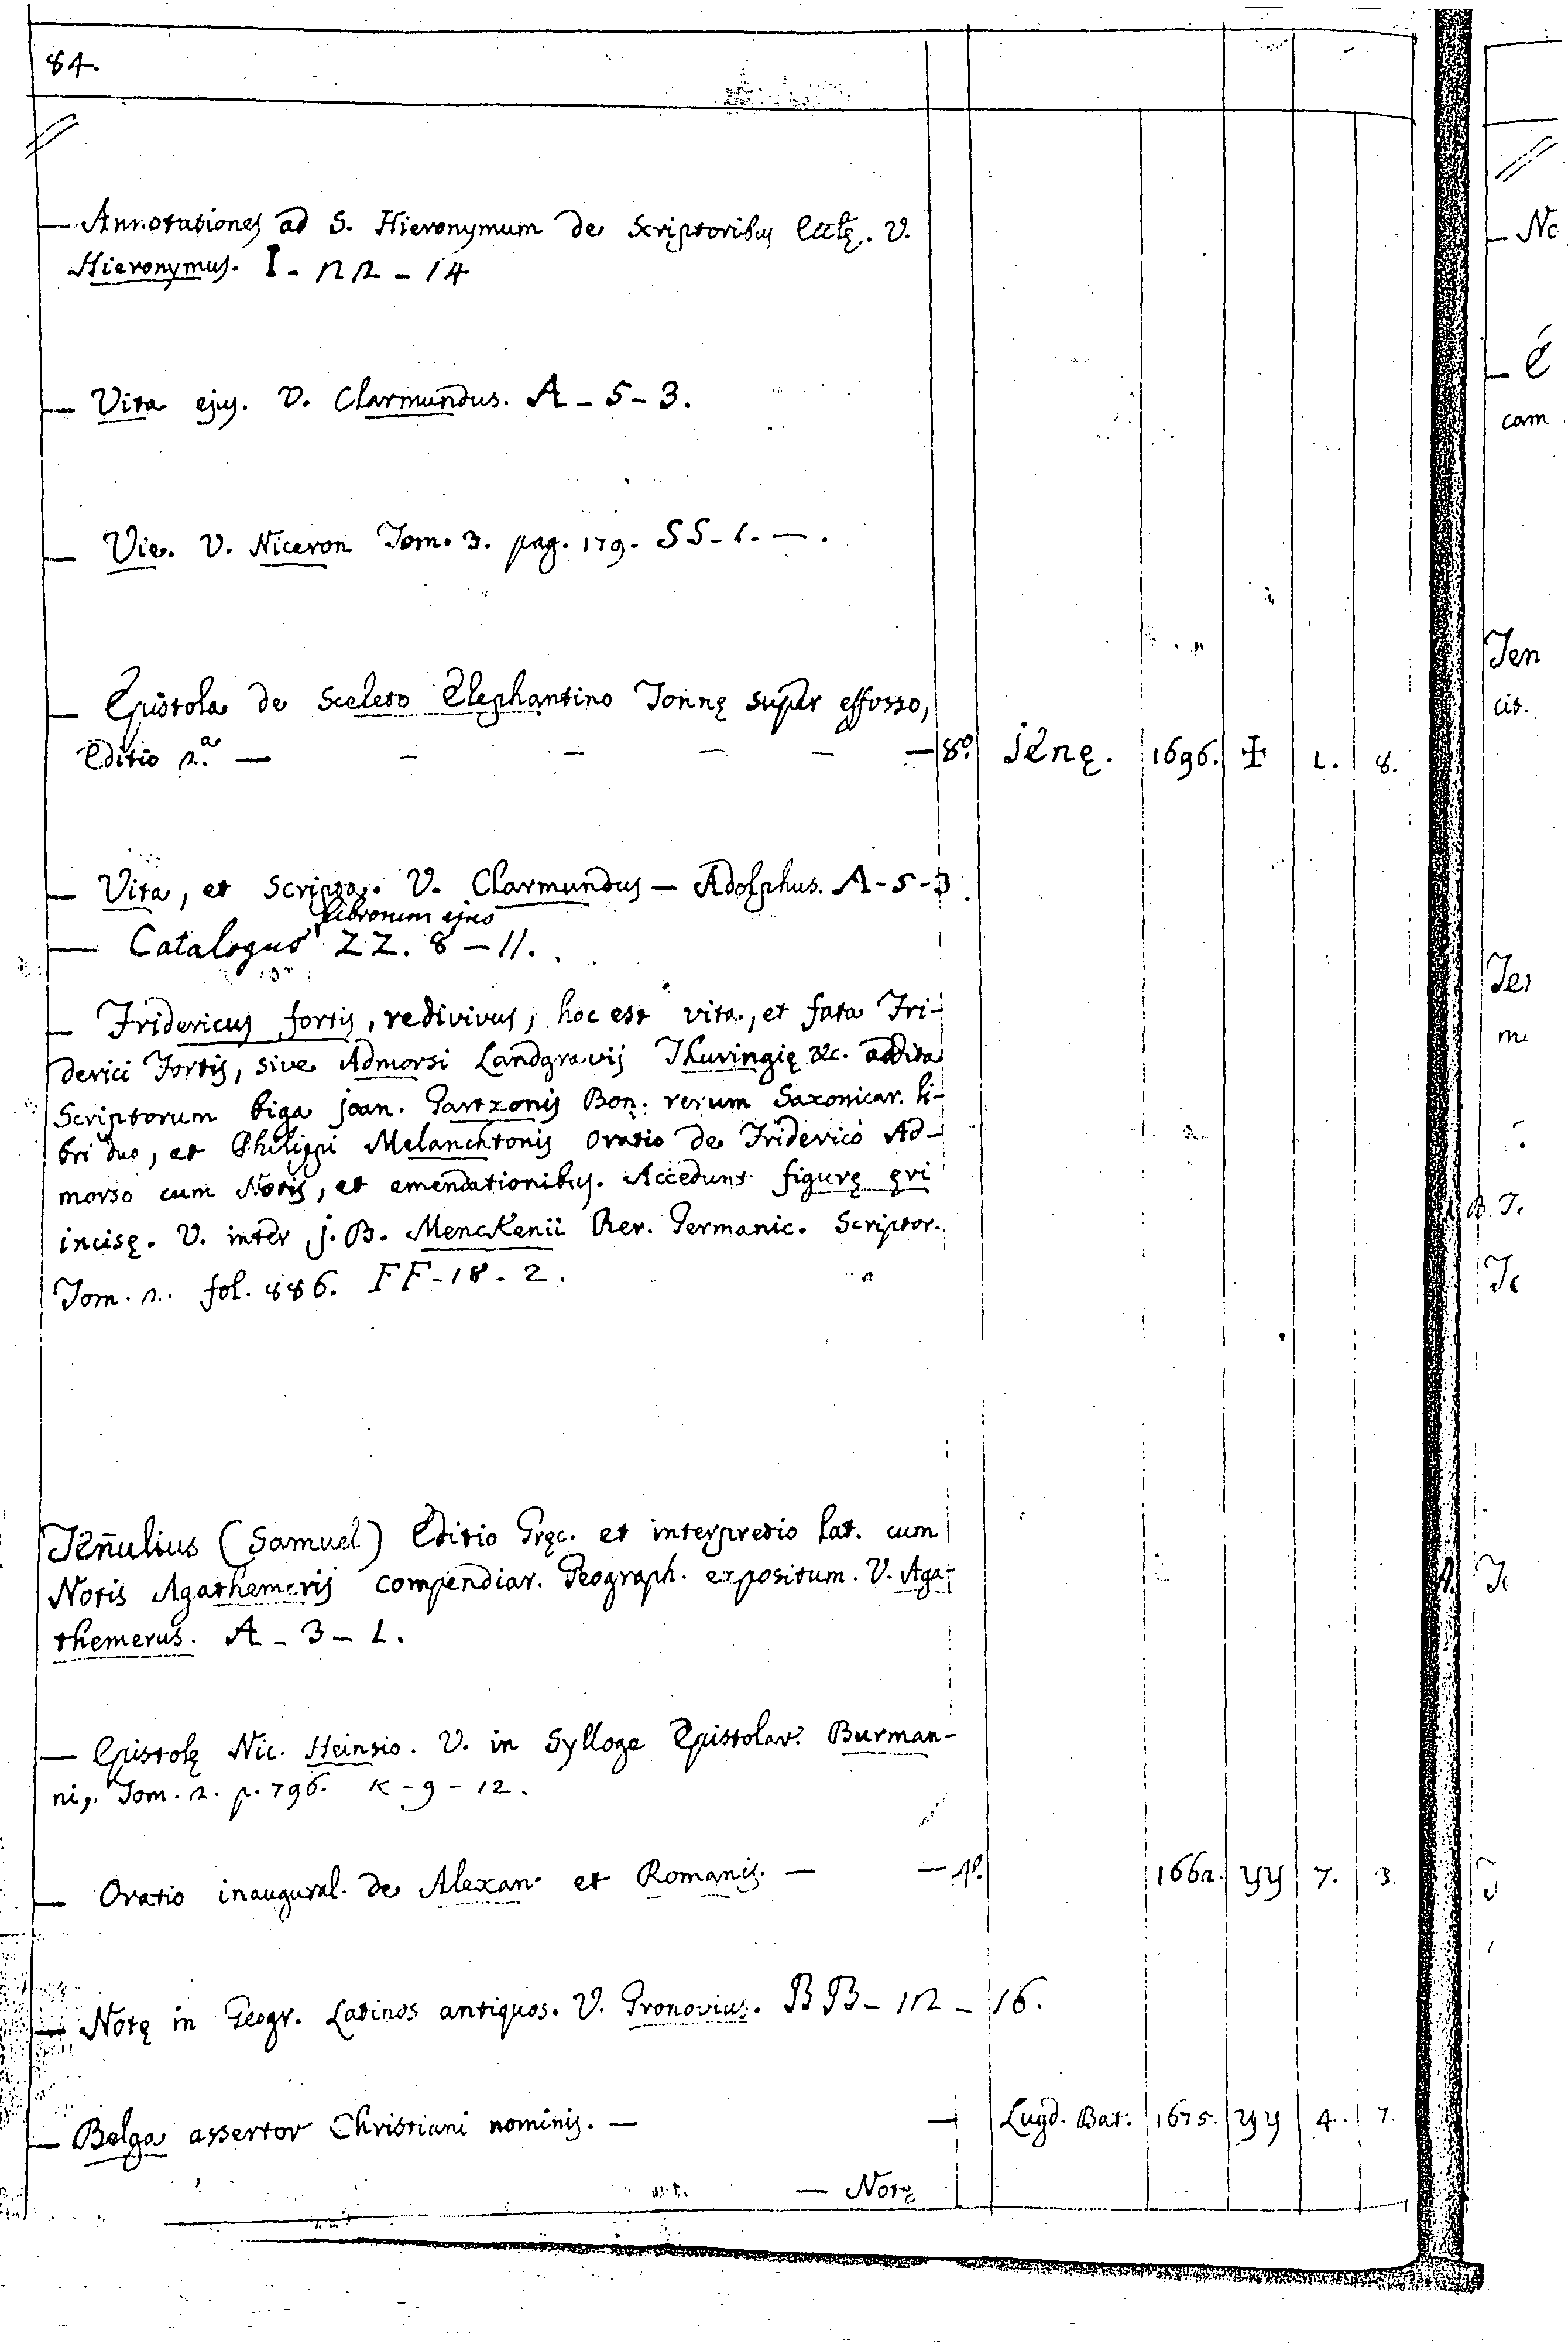 84.
— Annotationes ad S. Hieronymum de Scriptoribus Eccłę. V.
Hieronymus. I - 22 - 14
— Vita ejus. V. Clarmundus. A - 5 - 3.
— Vie. V. Niceron Tom. 3. pag. 179. SS - 1. — .
— Epistola de Sceleto Elephantino Tonnę super effosso,
Editio 2.ª — — — — — — 8º. jenę. 1696. ✠ 1. 8.
— Vita, et Scripta. V. Clarmundus — Adolphus. A - 5 - 3.
librorum ejus
— Catalogus ZZ. 8 — 11.
— Fridericus fortis, redivivus, hoc est vita, et fata Fri-
derici Fortis, sive Admorsi Landgravij Thuringię &c. addita
Scriptorum biga joan. Gartzonis Bon. rerum Saxonicar. li-
bri duo, et Philippi Melanchtonis Oratio de Friderico Ad-
morso cum Notis, et emendationibus. Accedunt figurę ęri
incisę. V. inter j. B. Menckenii Rer. Germanic. Scriptor.
Tom. 2. fol. 886. FF - 18 - 2.
Teñulius (Samuel) Editio Gręc. et interpretio Lat. cum
Notis Agathemeris compendiar. Geograph. expositum. V. Aga-
themerus. A - 3 - 1.
— Epistolę Nic. Heinsio. V. in Sylloge Epistolar. Burman-
ni,. Tom. 2. p. 796. K - 9 - 12.
— Oratio inaugural. de Alexan. et Romanis. — — 4º. 1662. YY 7. 3.
— Notę in Geogr. Latinos antiquos. V. Gronovius. BB - 12 - 16.
— Belga assertor Christiani nominis. — — Lugd. Bat. 1675. YY 4. 7.
— Notę